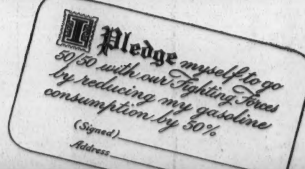 I Pledge myself to go
50/50 with our Fighting Forces
by reducing my gasoline
consumption by 50%
(Signed)
Address